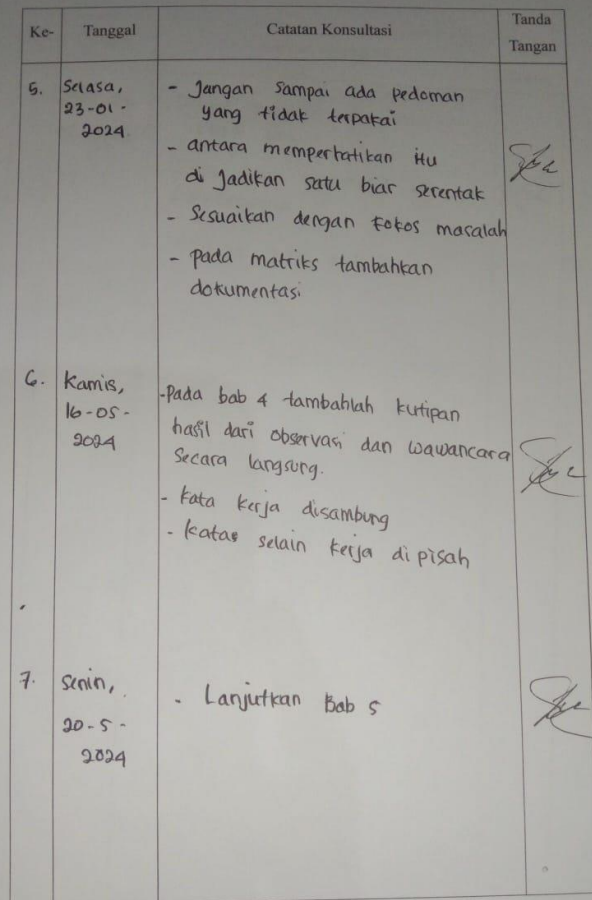 Ke- Tanggal Catatan Konsultasi Tanda Tangan
5. Selasa, 23-01-2024
- Jangan sampai ada pedoman
yang tidak terpakai
- antara memperhatikan itu
di Jadikan satu biar serentak
- Sesuaikan dengan Fokos masalah
- pada matriks tambahkan
dokumentasi
6. Kamis, 16-05-2024
- Pada bab 4 tambahlah kutipan
hasil dari observasi dan wawancara
Secara langsung.
- kata kerja disambung
- katas selain kerja di pisah
7. Senin, 20-5-2024
- Lanjutkan Bab 5